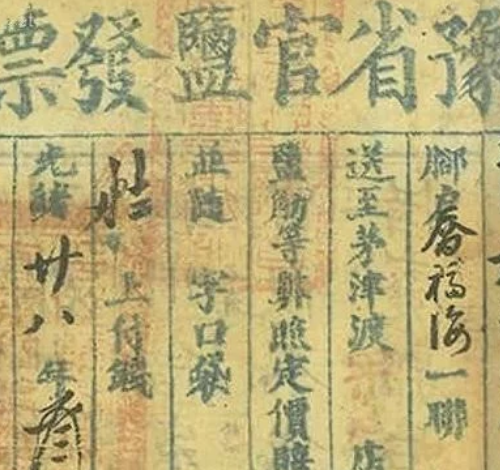 豫省官鹽發票
腳 春福海 一聯
送至茅津渡 店
鹽觔等弊照定價賠
並隨 字口袋
上付錢
光緒廿八年叁